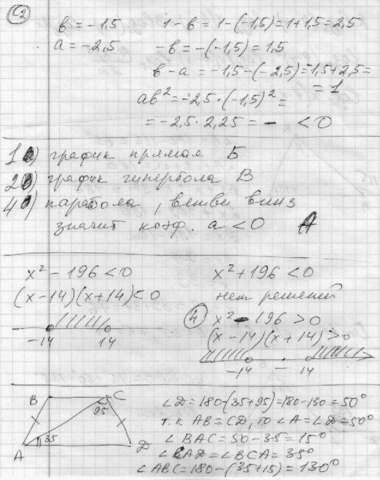 C2
в = -1,5
a = -2,5
1-в = 1-(-1,5)=1+1,5=2,5
-в = -(-1,5) = 1,5
в-a = -1,5-(-2,5)=-1,5+2,5=
= 1
aв² = -2,5·(-1,5)² =
= -2,5·2,25 = - <0
1) график прямая Б
2) график гипербола В
4) парабола, ветви вниз
значит коэф. a<0 А
x² - 196 < 0
(x-14)(x+14)<0
-14 14
x² + 196 < 0
нет решений
4 x² - 196 > 0
(x-14)(x+14)>0
-14 14
B C
95
35
A D
∠D=180-(35+95)=180-130=50°
т.к AB=CD, то ∠A=∠D=50°
∠BAC=50-35=15°
∠CAD=∠BCA=35°
∠ABC=180-(35+15)=130°